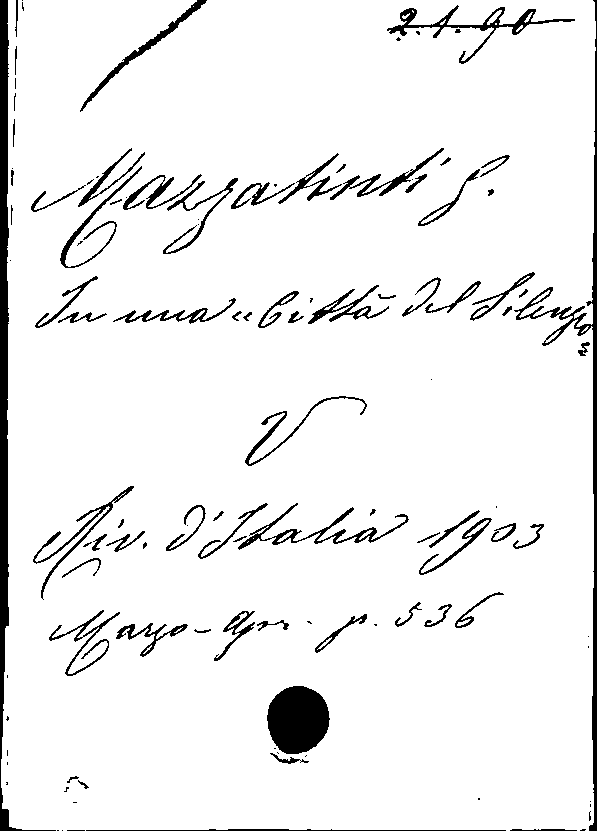 2.1.90
Mazzatinti G.
In una "Città del Silenzio"
V
Riv. d'Italia 1903
Marzo-Apr. p. 536